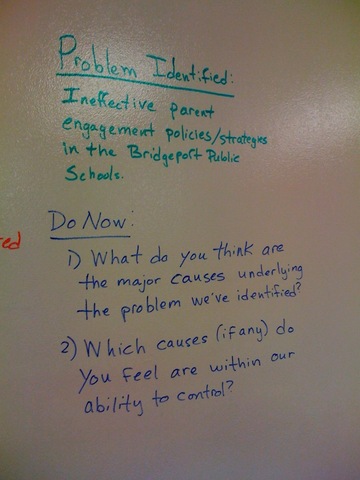 Problem Identified:
Ineffective parent
engagement policies/strategies
in the Bridgeport Public
Schools.
Do Now:
1) What do you think are
the major causes underlying
the problem we've identified?
2) Which causes (if any) do
you feel are within our
ability to control?